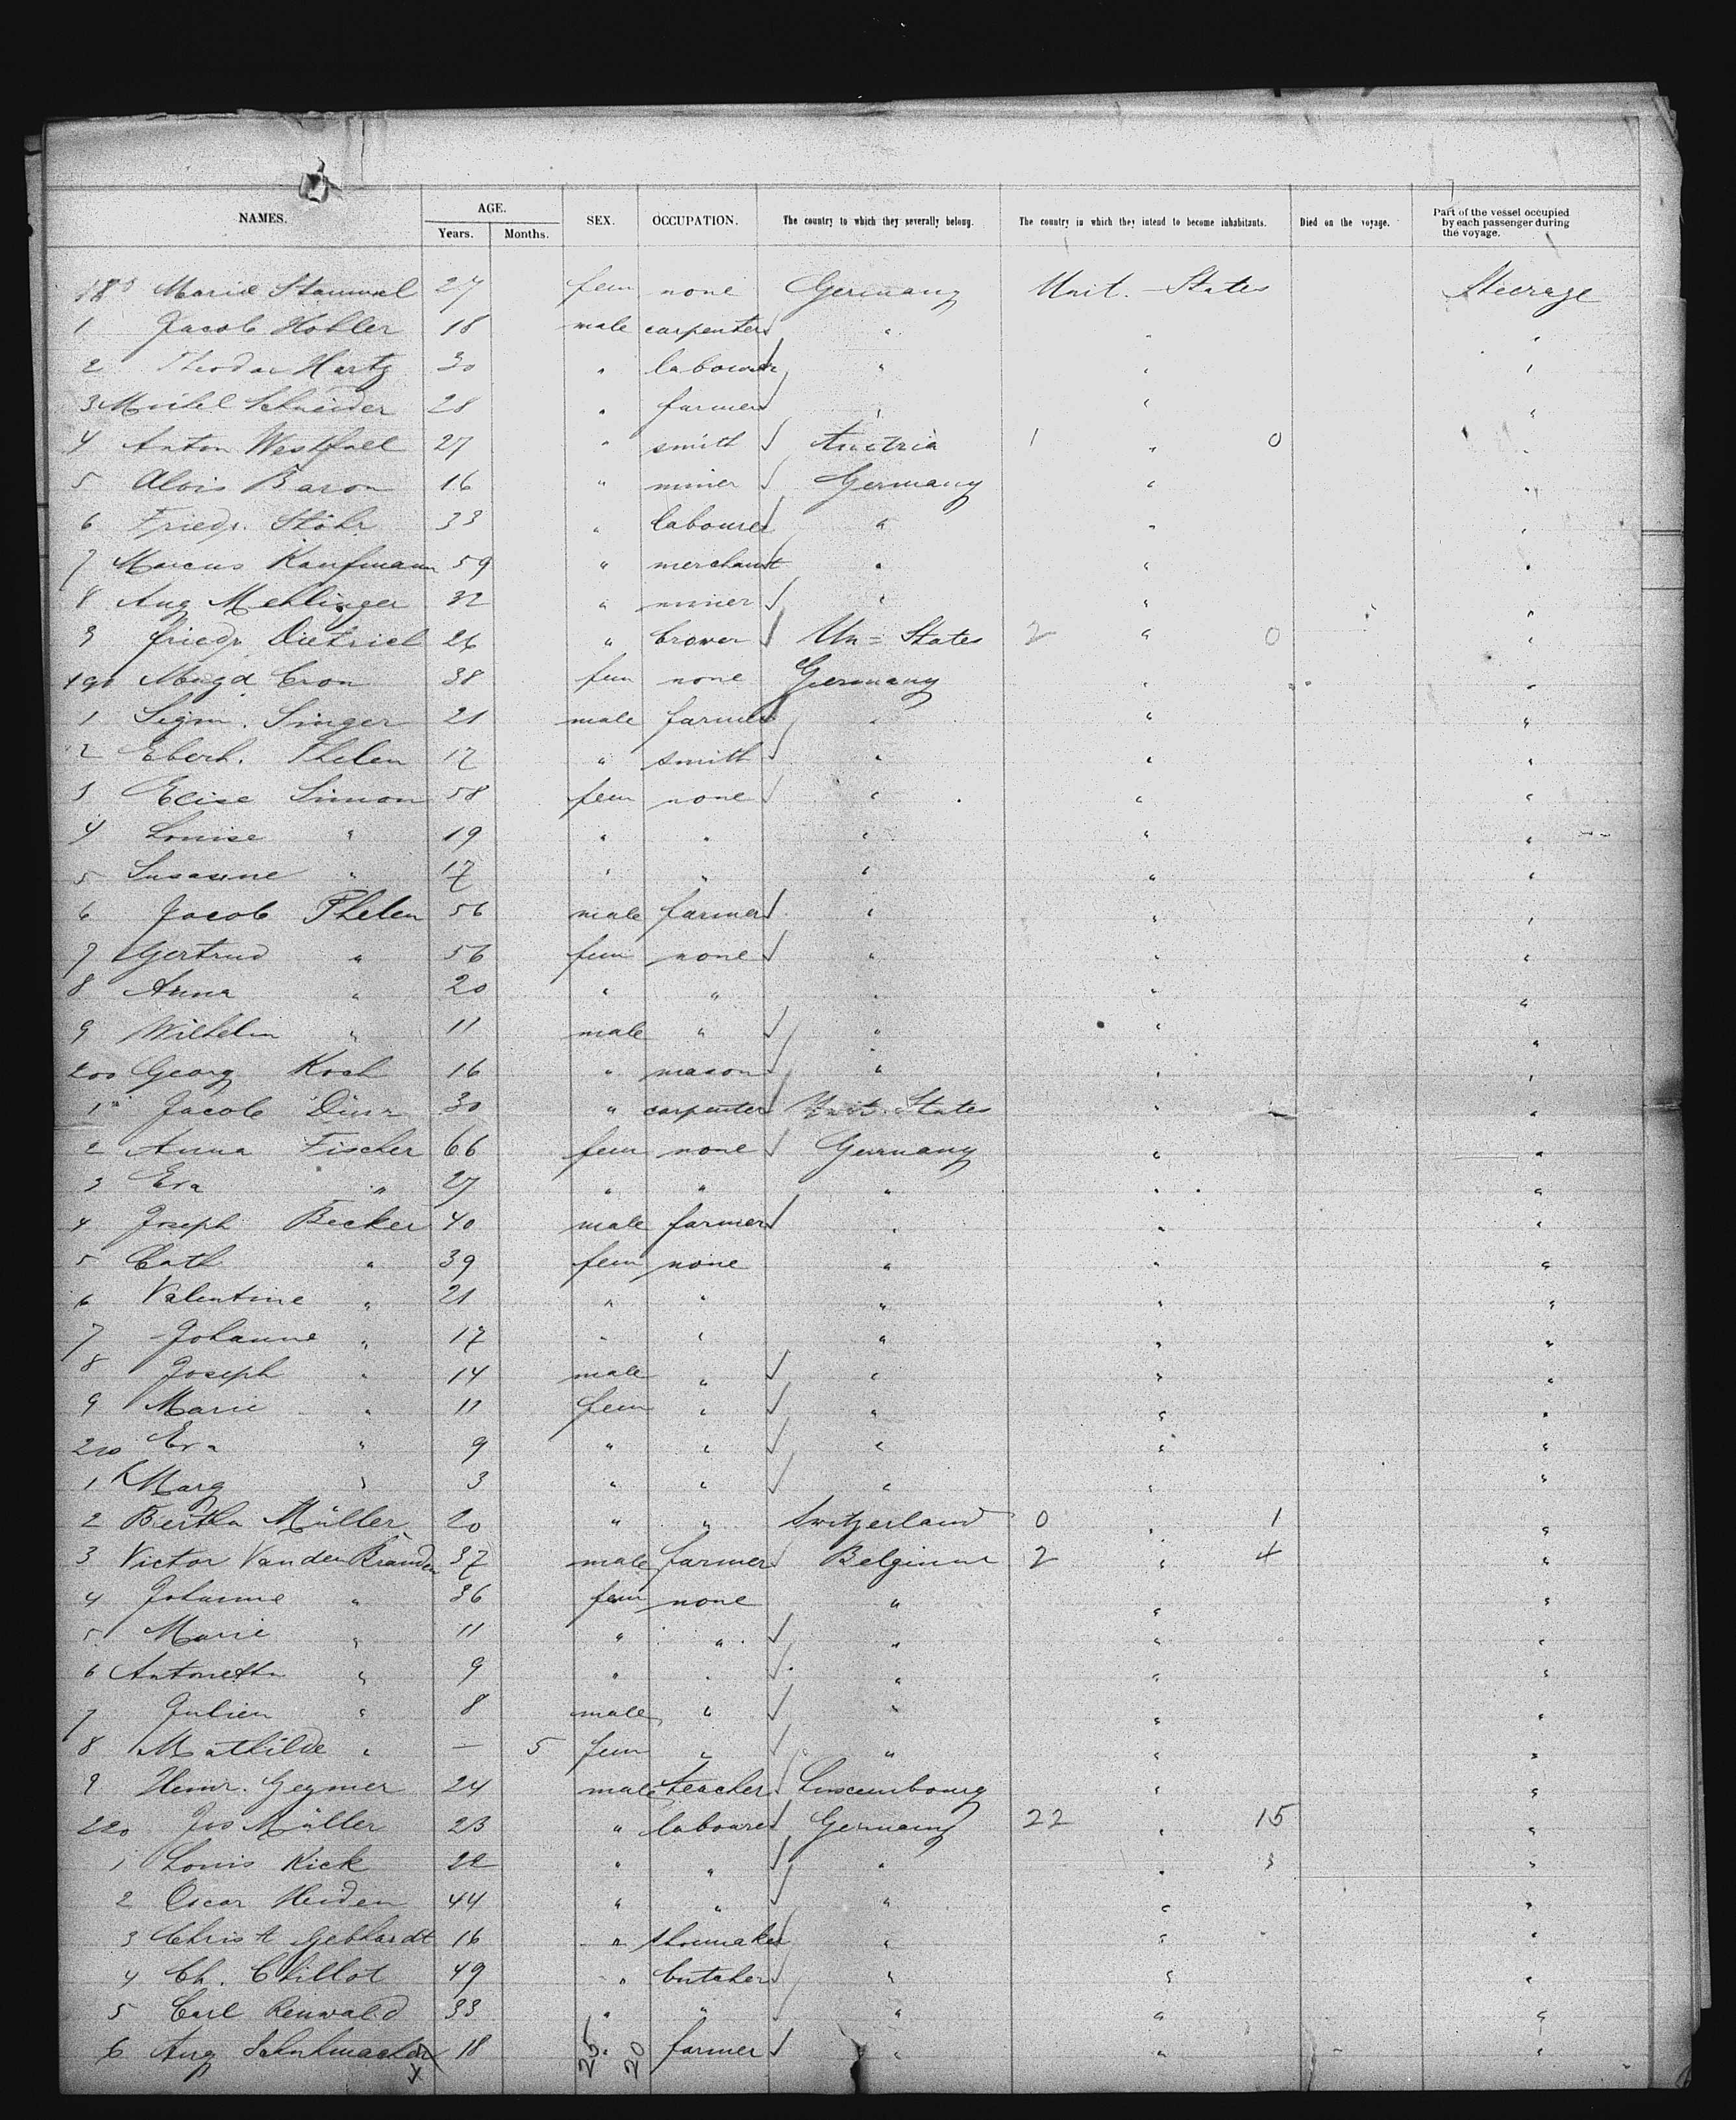 NAMES. AGE. SEX. OCCUPATION. The country to which they severally belong. The country in which they intend to become inhabitants. Died on the voyage. Part of the vessel occupied by each passenger during the voyage.
Years. Months.
Marie Stammel 27 fem none Germany Unit. States Steerage
1 Jacob Hobler 18 male carpenter " " "
2 Theodor Hartz 30 " labourer " " "
3 Michel Schneider 28 " farmer " " "
4 Anton Westfall 27 " smith Austria 1 " 0 "
5 Alois Baron 16 " miner Germany " "
6 Friedr. Stöhr 33 " labourer " " "
7 Marcus Kaufmann 59 " merchant " " "
8 Aug Mehlinger 32 " miner " " "
9 Friedr. Dietrich 26 " brower Un= States 2 " 0 "
190 Magd Cron 38 fem none Germany " "
1 Sigm. Singer 21 male farmer " " "
2 Eberh. Thelen 17 " smith " " "
3 Elise Simon 58 fem none " " "
4 Louise " 19 " " " " "
5 Susanne " 17 " " " " "
6 Jacob Thelen 56 male farmer " " "
7 Gertrud " 56 fem none " " "
8 Anna " 20 " " " " "
9 Wilhelm " 11 male " " " "
200 Georg Koch 16 " mason " " "
1 Jacob Dürr 30 " carpenter Unit. States " "
2 Anna Fischer 66 fem none Germany " "
3 Eva " 27 " " " " "
4 Joseph Becker 40 male farmer " " "
5 Cath " 39 fem none " " "
6 Valentine " 21 " " " " "
7 Johanne " 17 " " " " "
8 Joseph " 14 male " " " "
9 Marie " 11 fem " " " "
210 Eva " 9 " " " " "
1 Marg " 3 " " " " "
2 Bertha Müller 20 " " Switzerland 0 " 1 "
3 Victor Van den Branden 37 male farmer Belgium 2 " 4 "
4 Johanne " 36 fem none " " "
5 Marie " 11 " " " " "
6 Antonetta " 9 " " " " "
7 Julien " 8 male " " " "
8 Mathilde " — 5 fem " " " "
9 Heinr. Geymer 24 male teacher Luxembourg " "
220 Jos Müller 23 " labourer Germany 22 " 15 "
1 Louis Kick 22 " " " " 3 "
2 Oscar Heiden 44 " " " " "
3 Christ Gebhardt 16 " shoemaker " " "
4 Ch. Chillot 49 " butcher " " "
5 Carl Renwald 33 " " " " "
6 Aug Schuhmacher 18 " farmer " " "
25 20